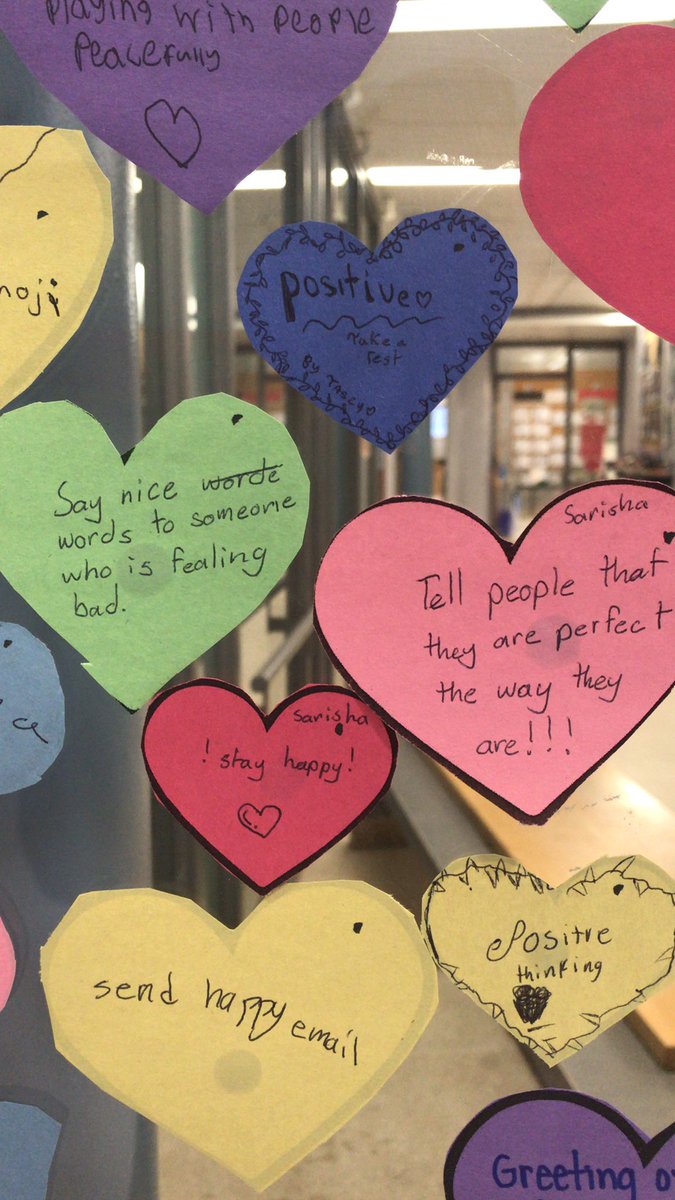 playing with people
Peacefully
moji
positive
Take a
rest
By
Say nice worde
words to someone
who is fealing
bad.
Sarisha
Tell people that
they are perfect
the way they
are!!!
Sarisha
! stay happy!
send happy
email
Positve
thinking
Greeting